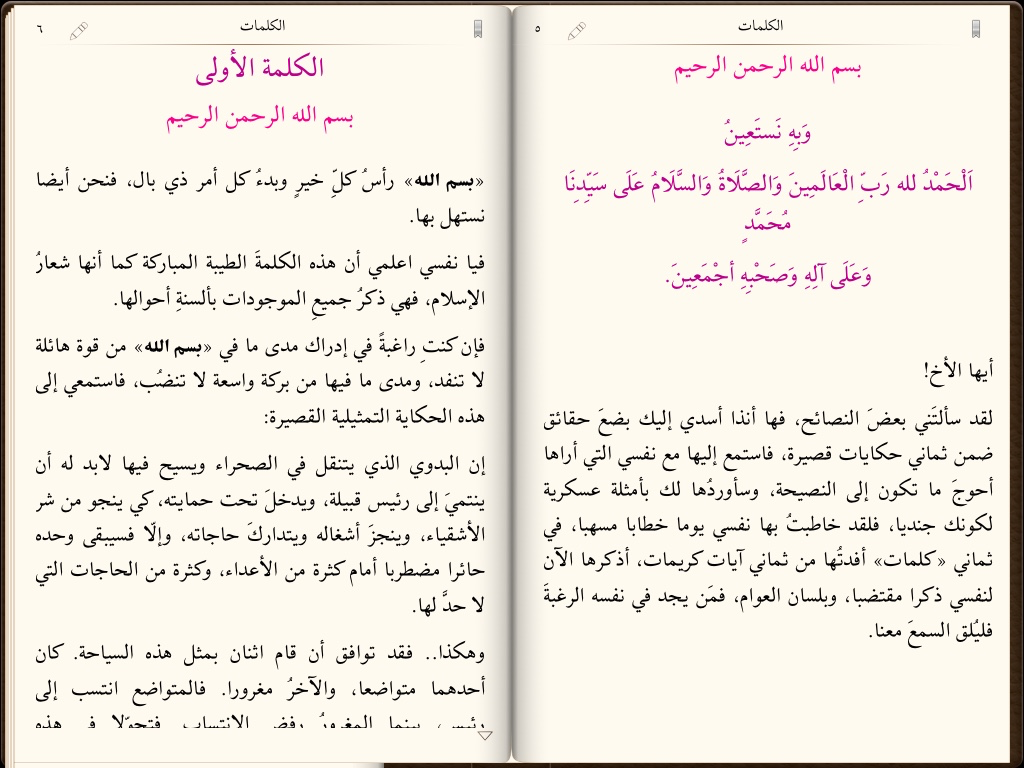 الكلمات
٥
بسم الله الرحمن الرحيم
وَبِهِ نَستَعِينُ
اَلْحَمْدُ لله رَبِّ الْعَالَمِينَ وَالصَّلَاةُ وَالسَّلَامُ عَلَى سَيِّدِنَا
مُحَمَّدٍ
وَعَلَى آلِهِ وَصَحْبِهِ أجْمَعِينَ.
أيها الأخ!
لقد سألتَني بعضَ النصائح، فها أنذا أسدي إليك بضعَ حقائق
ضمن ثماني حكايات قصيرة، فاستمع إليها مع نفسي التي أراها
أحوجَ ما تكون إلى النصيحة، وسأوردُها لك بأمثلة عسكرية
لكونك جنديا، فلقد خاطبتُ بها نفسي يوما خطابا مسهبا، في
ثماني «كلمات» أفدتُها من ثماني آيات كريمات، أذكرها الآن
لنفسي ذكرا مقتضبا، وبلسان العوام، فمَن يجد في نفسه الرغبةَ
فليُلق السمعَ معنا.
الكلمات
٦
الكلمة الأولى
بسم الله الرحمن الرحيم
«بسم الله» رأسُ كلِّ خيرٍ وبدءُ كل أمر ذي بال، فنحن أيضا
نستهل بها.
فيا نفسي اعلمي أن هذه الكلمةَ الطيبة المباركة كما أنها شعارُ
الإسلام، فهي ذكرُ جميعِ الموجودات بألسنةِ أحوالها.
فإن كنتِ راغبةً في إدراك مدى ما في «بسم الله» من قوة هائلة
لا تنفد، ومدى ما فيها من بركة واسعة لا تنضُب، فاستمعي إلى
هذه الحكاية التمثيلية القصيرة:
إن البدوي الذي يتنقل في الصحراء ويسيح فيها لابد له أن
ينتميَ إلى رئيس قبيلة، ويدخلَ تحت حمايته، كي ينجو من شر
الأشقياء، وينجزَ أشغاله ويتداركَ حاجاته، وإلّا فسيبقى وحده
حائرا مضطربا أمام كثرة من الأعداء، وكثرة من الحاجات التي
لا حدَّ لها.
وهكذا.. فقد توافق أن قام اثنان بمثل هذه السياحة. كان
أحدهما متواضعا، والآخرُ مغرورا. فالمتواضع انتسب إلى
رئيس، بينما المغرورُ رفض الانتساب. فتجوّلا في هذه